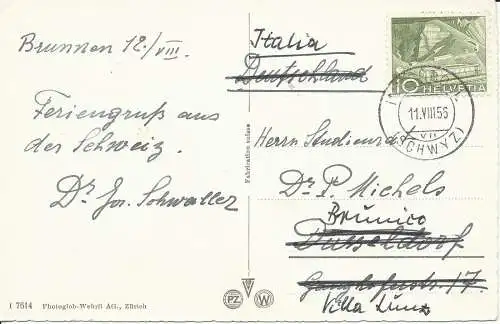 Brunnen 12./VIII.
Feriengruß aus
der Schweiz.
Dr. Jos. Schwaller
I 7614 Photoglob-Wehrli AG., Zürich
Fabrication suisse
PZ W
10 HELVETIA
11.VIII.56
VII
(SCHWYZ)
Italia
Deutschland
Herrn Studienrd
Dr. P. Michels
Brunico
Dusseldorf
17.
Villa